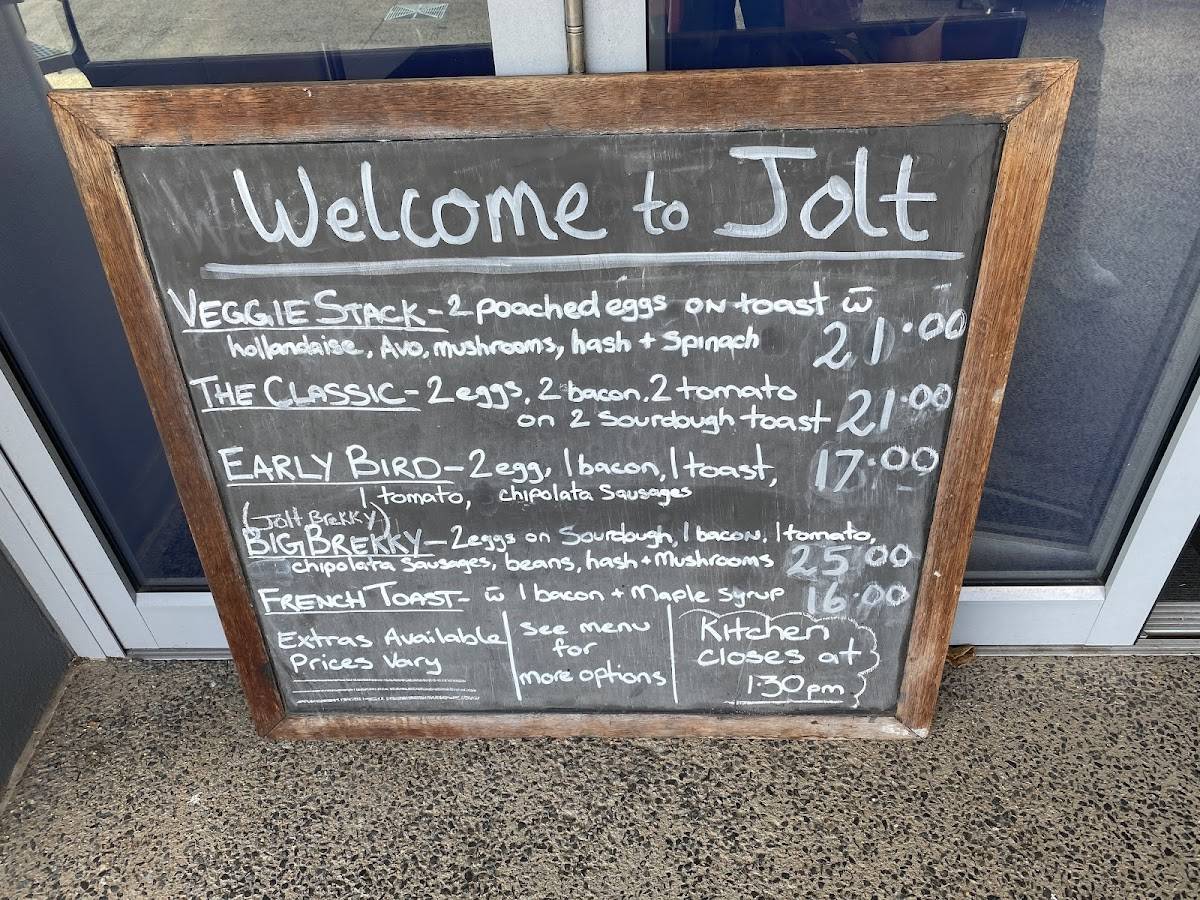 Welcome to Jolt
VEGGIE STACK - 2 poached eggs on toast w̅
hollandaise, Avo, mushrooms, hash + Spinach 21.00
THE CLASSIC - 2 eggs, 2 bacon. 2 tomato
on 2 Sourdough toast 21.00
EARLY BIRD - 2 egg, 1 bacon, 1 toast, 17.00
1 tomato, chipolata Sausages
(Jolt Brekky)
BIG BREKKY - 2 eggs on Sourdough, 1 bacon, 1 tomato,
chipolata Sausages, beans, hash + Mushrooms 25.00
FRENCH TOAST - w̅ 1 bacon + Maple Syrup 16.00
Extras Available
Prices Vary
see menu
for
more options
Kitchen
closes at
1:30pm